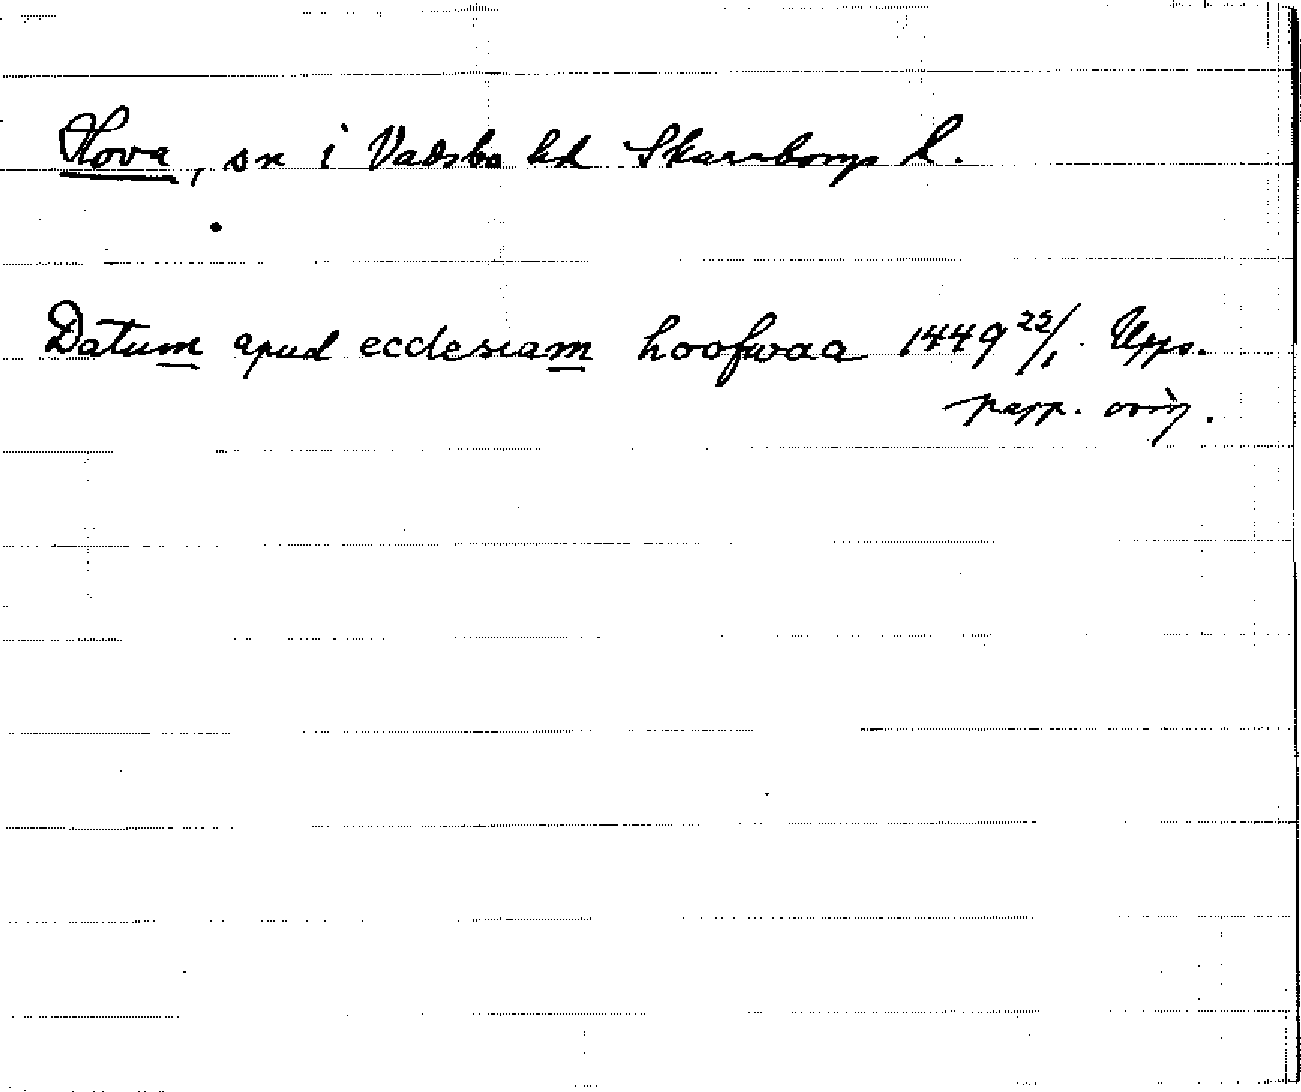 Hova, sn i Vadsbo hd Skaraborgs L.
Datum apud ecclesiam hoofwaa 1449 25/1. Upps.
papp. orig.